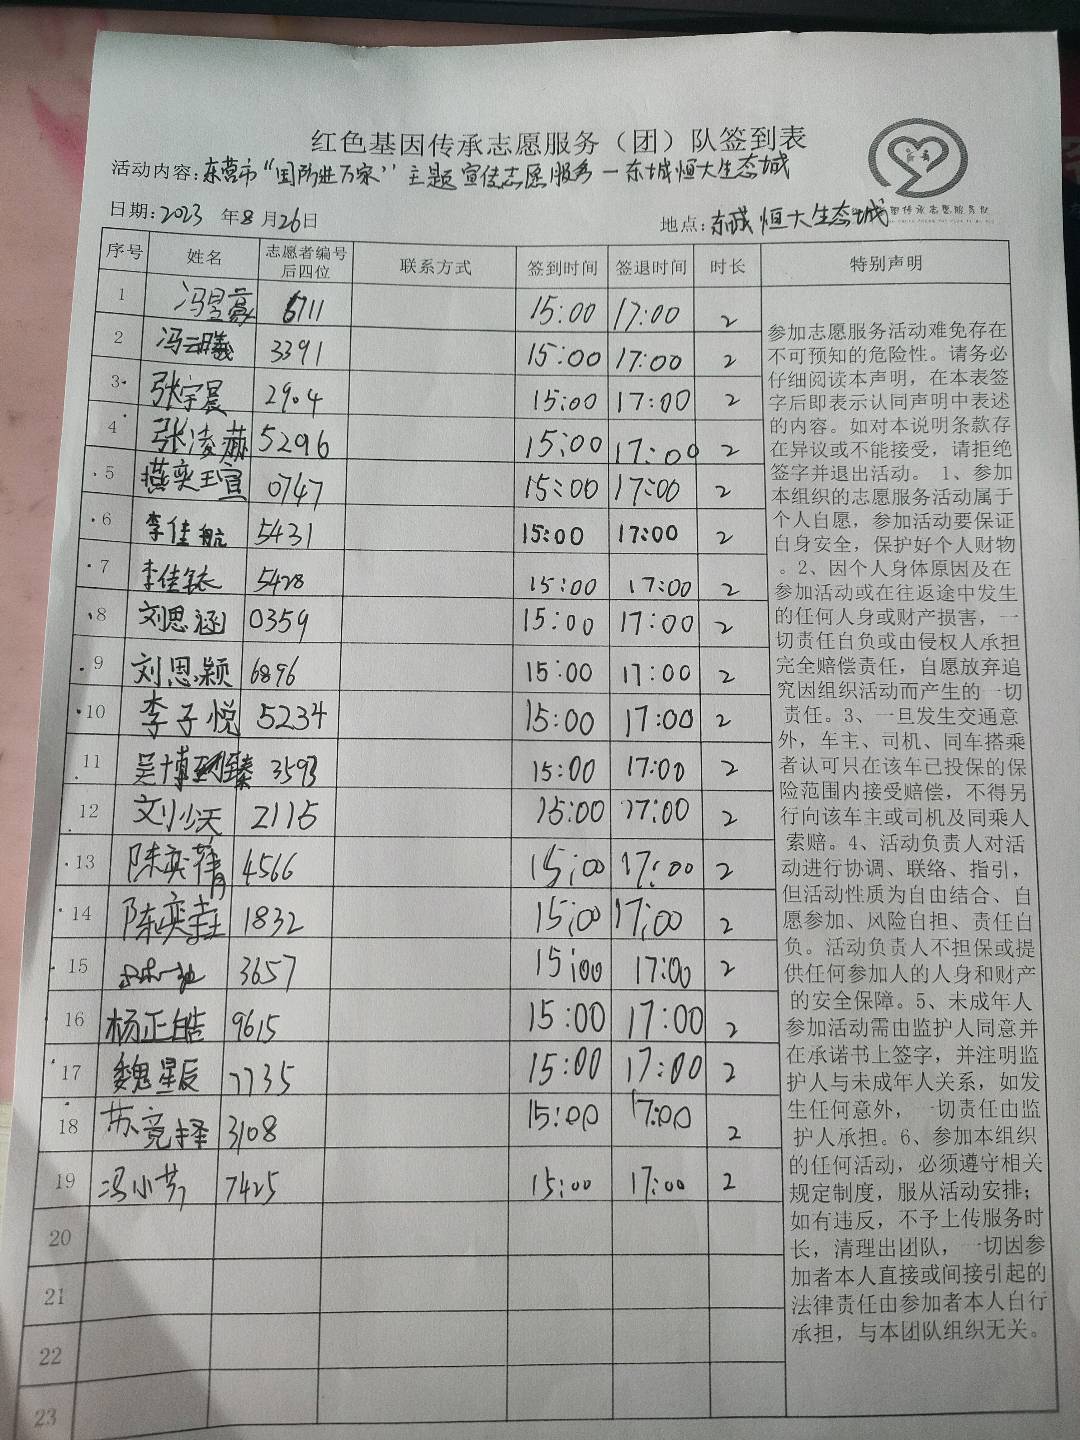 红色基因传承志愿服务（团）队签到表
活动内容：东营市“国防进万家”主题宣传志愿服务—东城恒大生态城
日期：2023年8月26日 地点：东城恒大生态城
基因传承志愿服务队
序号 姓名 志愿者编号后四位 联系方式 签到时间 签退时间 时长 特别声明
1 冯昱豪 6711 15:00 17:00 2
2 冯云曦 3391 15:00 17:00 2
3 张宇晨 2904 15:00 17:00 2
4 张凌赫 5296 15:00 17:00 2
5 燕奕王宣 0747 15:00 17:00 2
6 李佳航 5431 15:00 17:00 2
7 李佳 5428 15:00 17:00 2
8 刘思涵 0359 15:00 17:00 2
9 刘思颖 6896 15:00 17:00 2
10 李子悦 5234 15:00 17:00 2
11 吴博臻 3593 15:00 17:00 2
12 刘少天 2115 15:00 17:00 2
13 陈奕菁 4566 15:00 17:00 2
14 陈奕 1832 15:00 17:00 2
15 3657 15:00 17:00 2
16 杨正皓 9615 15:00 17:00 2
17 魏星辰 7735 15:00 17:00 2
18 苏竞择 3108 15:00 17:00 2
19 冯小芳 7425 15:00 17:00 2
20
21
22
23
参加志愿服务活动难免存在
不可预知的危险性。请务必
仔细阅读本声明，在本表签
字后即表示认同声明中表述
的内容。如对本说明条款存
在异议或不能接受，请拒绝
签字并退出活动。 1、参加
本组织的志愿服务活动属于
个人自愿，参加活动要保证
自身安全，保护好个人财物
。2、因个人身体原因及在
参加活动或在往返途中发生
的任何人身或财产损害，一
切责任自负或由侵权人承担
完全赔偿责任，自愿放弃追
究因组织活动而产生的一切
责任。3、一旦发生交通意
外，车主、司机、同车搭乘
者认可只在该车已投保的保
险范围内接受赔偿，不得另
行向该车主或司机及同乘人
索赔。4、活动负责人对活
动进行协调、联络、指引，
但活动性质为自由结合、自
愿参加、风险自担、责任自
负。活动负责人不担保或提
供任何参加人的人身和财产
的安全保障。5、未成年人
参加活动需由监护人同意并
在承诺书上签字，并注明监
护人与未成年人关系，如发
生任何意外，一切责任由监
护人承担。6、参加本组织
的任何活动，必须遵守相关
规定制度，服从活动安排；
如有违反，不予上传服务时
长，清理出团队，一切因参
加者本人直接或间接引起的
法律责任由参加者本人自行
承担，与本团队组织无关。